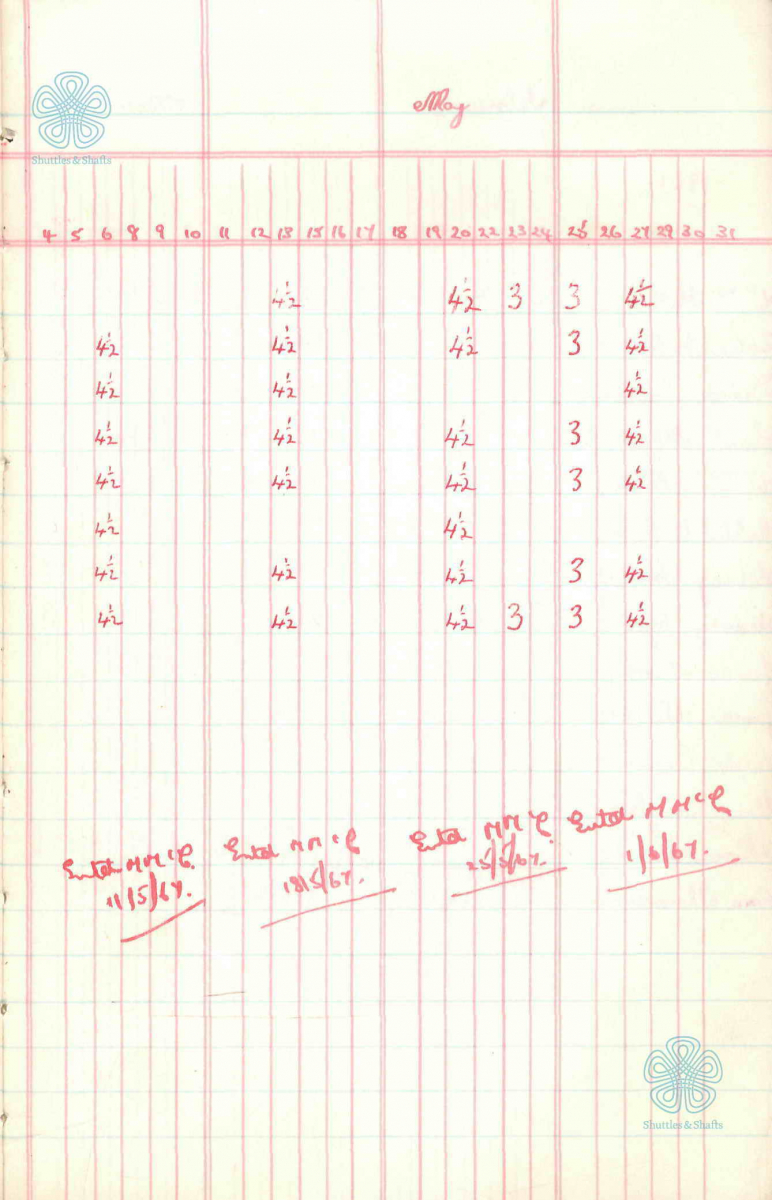 May
Shuttles & Shafts
4 5 6 8 9 10 11 12 13 15 16 17 18 19 20 22 23 24 25 26 27 29 30 31
4½ 4½ 3 3 4½
4½ 4½ 4½ 3 4½
4½ 4½ 4½
4½ 4½ 4½ 3 4½
4½ 4½ 4½ 3 4½
4½ 4½
4½ 4½ 4½ 3 4½
4½ 4½ 4½ 3 3 4½
Entd MMcC Entd MMcC Entd MMcC Entd MMcC
11/5/67. 18/5/67. 25/5/67. 1/6/67.
Shuttles & Shafts